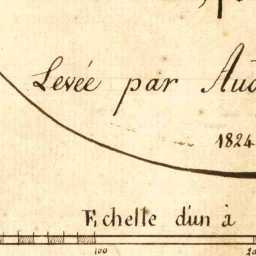 Levée par Aud
1824
Echelle d'un à
100 20